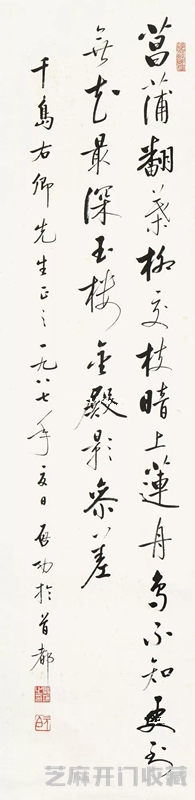 菖蒲翻葉柳交枝暗上蓮舟鳥不知更到
無花最深玉楼金殿影参差
千島右卿先生正之一九八七年夏日启功於首都
芝麻开门收藏